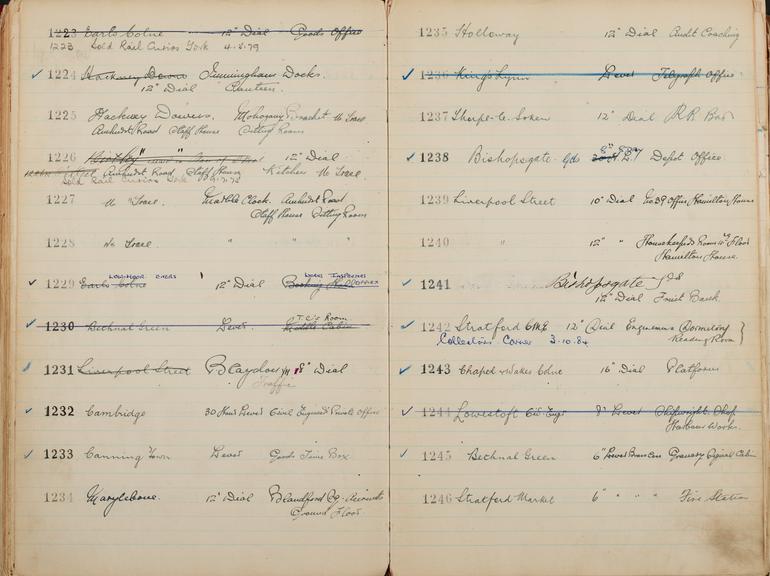 1223 Earls Colne 12" Dial Goods Office
1223 Sold Rail Curios York 4.5.79
1224 Hackney Downs Immingham Docks.
12" Dial Canteen.
1225 Hackney Downs. Mahogany Bracket No Trace
Amhurst Road Staff House Sitting Room
1226 12" Dial
Amhurst Road Staff House Kitchen No Trace.
Sold Rail Curios York
1227 No Trace. Marble Clock. Amhurst Road
Staff House Sitting Room
1228 No Trace. " " "
LOW MOOR
1229 Earls Colne 12" Dial Booking Hall
T.C's Room
1230 Bethnal Green Lever. Cabin
1231 Liverpool Street Blaydon 8" Dial
Traffic
1232 Cambridge 30 Hour Lever Civil Engineers Private Office
1233 Canning Town Lever Goods Time Box
1234 Marylebone. 12" Dial Blandford Sq. Accounts
Ground Floor
1235 Holloway 12" Dial Audit Coaching
1236 King's Lynn Lever Telegraph Office
1237 Thorpe-le-Soken 12" Dial R R Bar
1238 Bishopsgate Gds Depot Office
1239 Liverpool Street 10" Dial No 39 Office Hamilton House
1240 " 12" " Housekeepers Room Floor
Hamilton House.
1241 Bishopsgate Gds
12" Dial Fruit Bank
1242 Stratford 12" Dial Enginemens Dormitory
Collectors Corner 3.10.84 Reading Room
1243 Chapel & Wakes Colne 16" Dial Platform
1244 Lowestoft Civ. Engr 8" Lever Shipwright Shop
Harbour Works.
1245 Bethnal Green 6" Lever Brass Case Granary Signal Cabin
1246 Stratford Market 6" " " " Fire Station